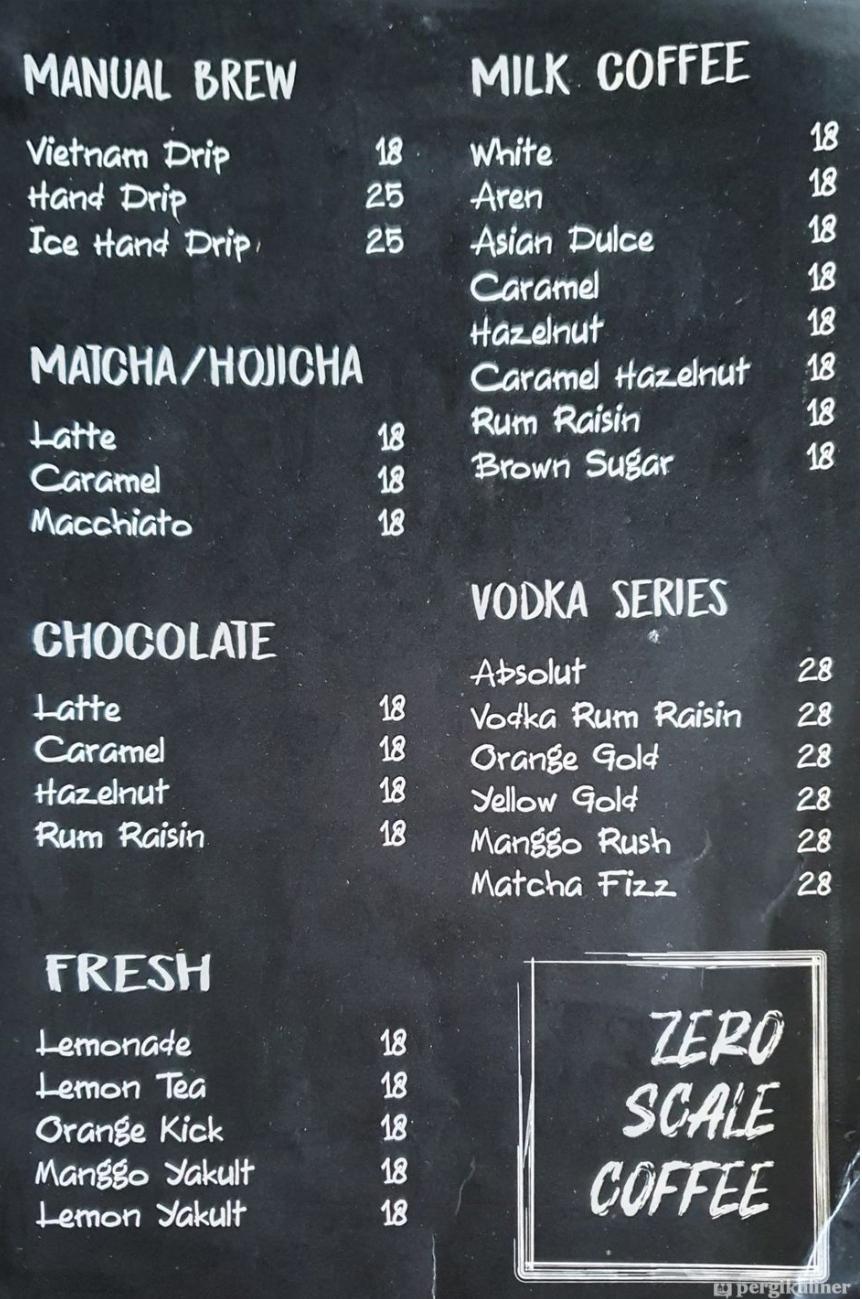 MANUAL BREW
Vietnam Drip 18
Hand Drip 25
Ice Hand Drip 25
MATCHA/HOJICHA
Latte 18
Caramel 18
Macchiato 18
CHOCOLATE
Latte 18
Caramel 18
Hazelnut 18
Rum Raisin 18
FRESH
Lemonade 18
Lemon Tea 18
Orange Kick 18
Manggo Yakult 18
Lemon Yakult 18
MILK COFFEE
White 18
Aren 18
Asian Dulce 18
Caramel 18
Hazelnut 18
Caramel Hazelnut 18
Rum Raisin 18
Brown Sugar 18
VODKA SERIES
Absolut 28
Vodka Rum Raisin 28
Orange Gold 28
Yellow Gold 28
Manggo Rush 28
Matcha Fizz 28
ZERO
SCALE
COFFEE
pergikuliner